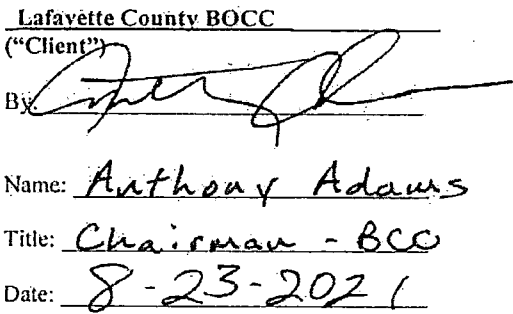 Lafayette County BOCC
("Client")
By:
Name: Anthony Adams
Title: Chairman - BCC
Date: 8-23-2021